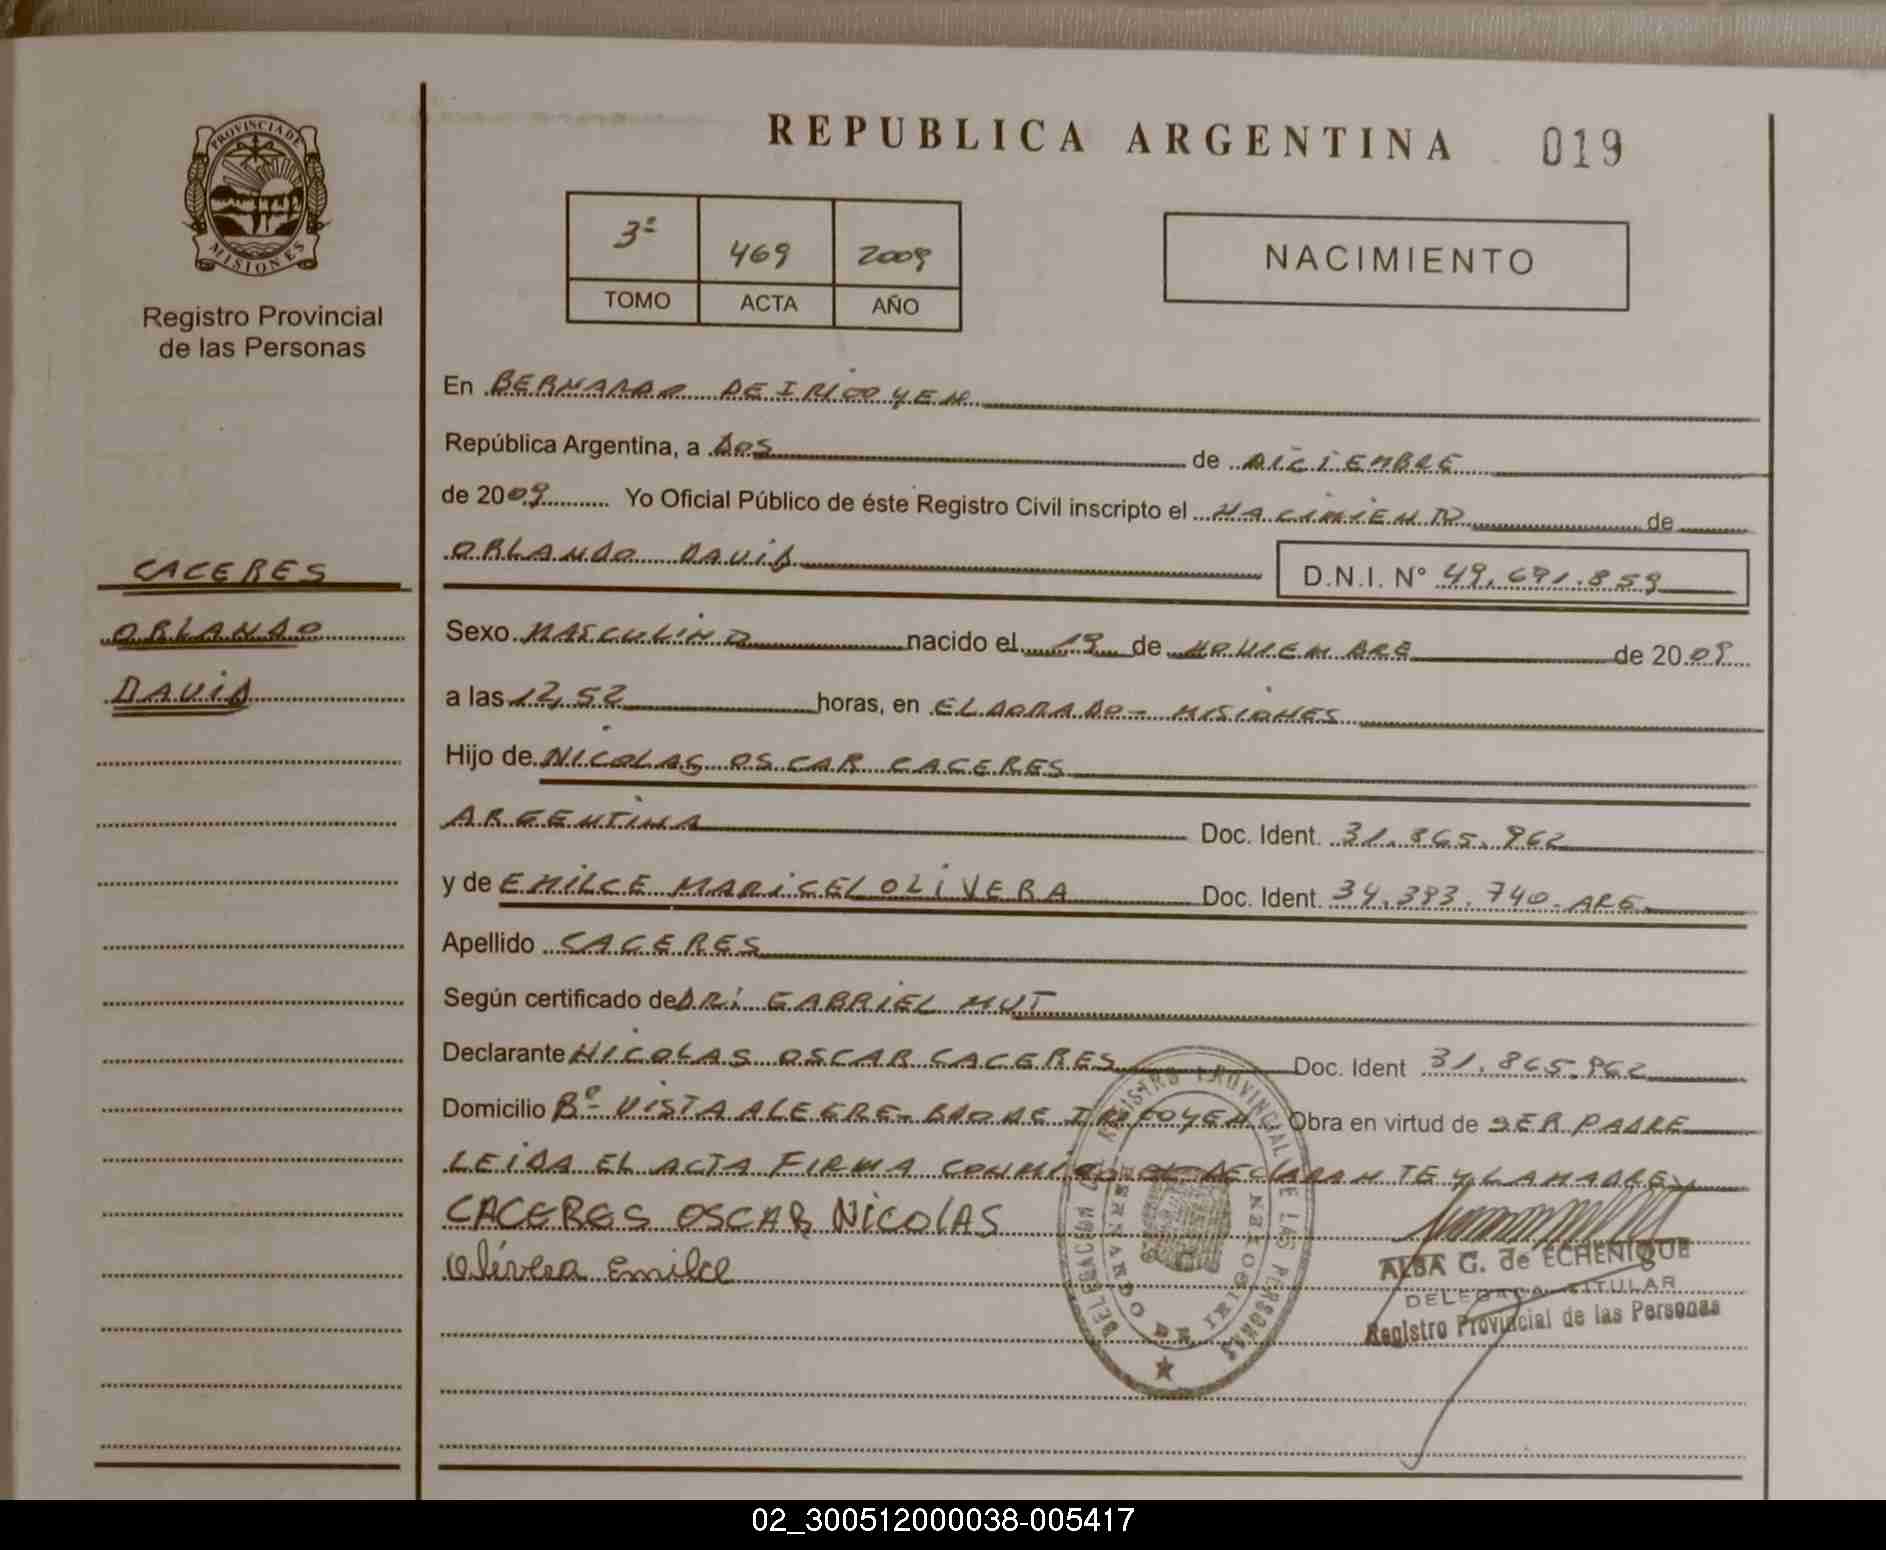 REPUBLICA ARGENTINA 019
PROVINCIA DE
MISIONES
Registro Provincial
de las Personas
3º 469 2009
TOMO ACTA AÑO
NACIMIENTO
En BERNARDO DE IRIGOYEN
República Argentina, a DOS de DICIEMBRE
de 2009 Yo Oficial Público de éste Registro Civil inscripto el NACIMIENTO de
ORLANDO DAVID D.N.I. N° 49.691.859
CACERES
ORLANDO
DAVID
Sexo MASCULINO nacido el 19 de NOVIEMBRE de 2009
a las 12,52 horas, en ELDORADO - MISIONES
Hijo de NICOLAS OSCAR CACERES
ARGENTINA Doc. Ident. 31.865.962
y de EMILCE MARICEL OLIVERA Doc. Ident. 34.393.740 ARG.
Apellido CACERES
Según certificado de DR: GABRIEL MUT
Declarante NICOLAS OSCAR CACERES Doc. Ident 31.865.962
Domicilio Bº- VISTA ALEGRE- BDO DE IRIGOYEN Obra en virtud de SER PADRE
LEIDA EL ACTA FIRMA CONMIGO EL DECLARANTE Y LA MADRE
CACERES OSCAR NICOLAS
Olivera Emilce
DELEGACION REGISTRO PROVINCIAL DE LAS PERSONAS
BERNARDO DE IRIGOYEN
ALBA G. de ECHENIQUE
DELEGADA TITULAR
Registro Provincial de las Personas
02_300512000038-005417